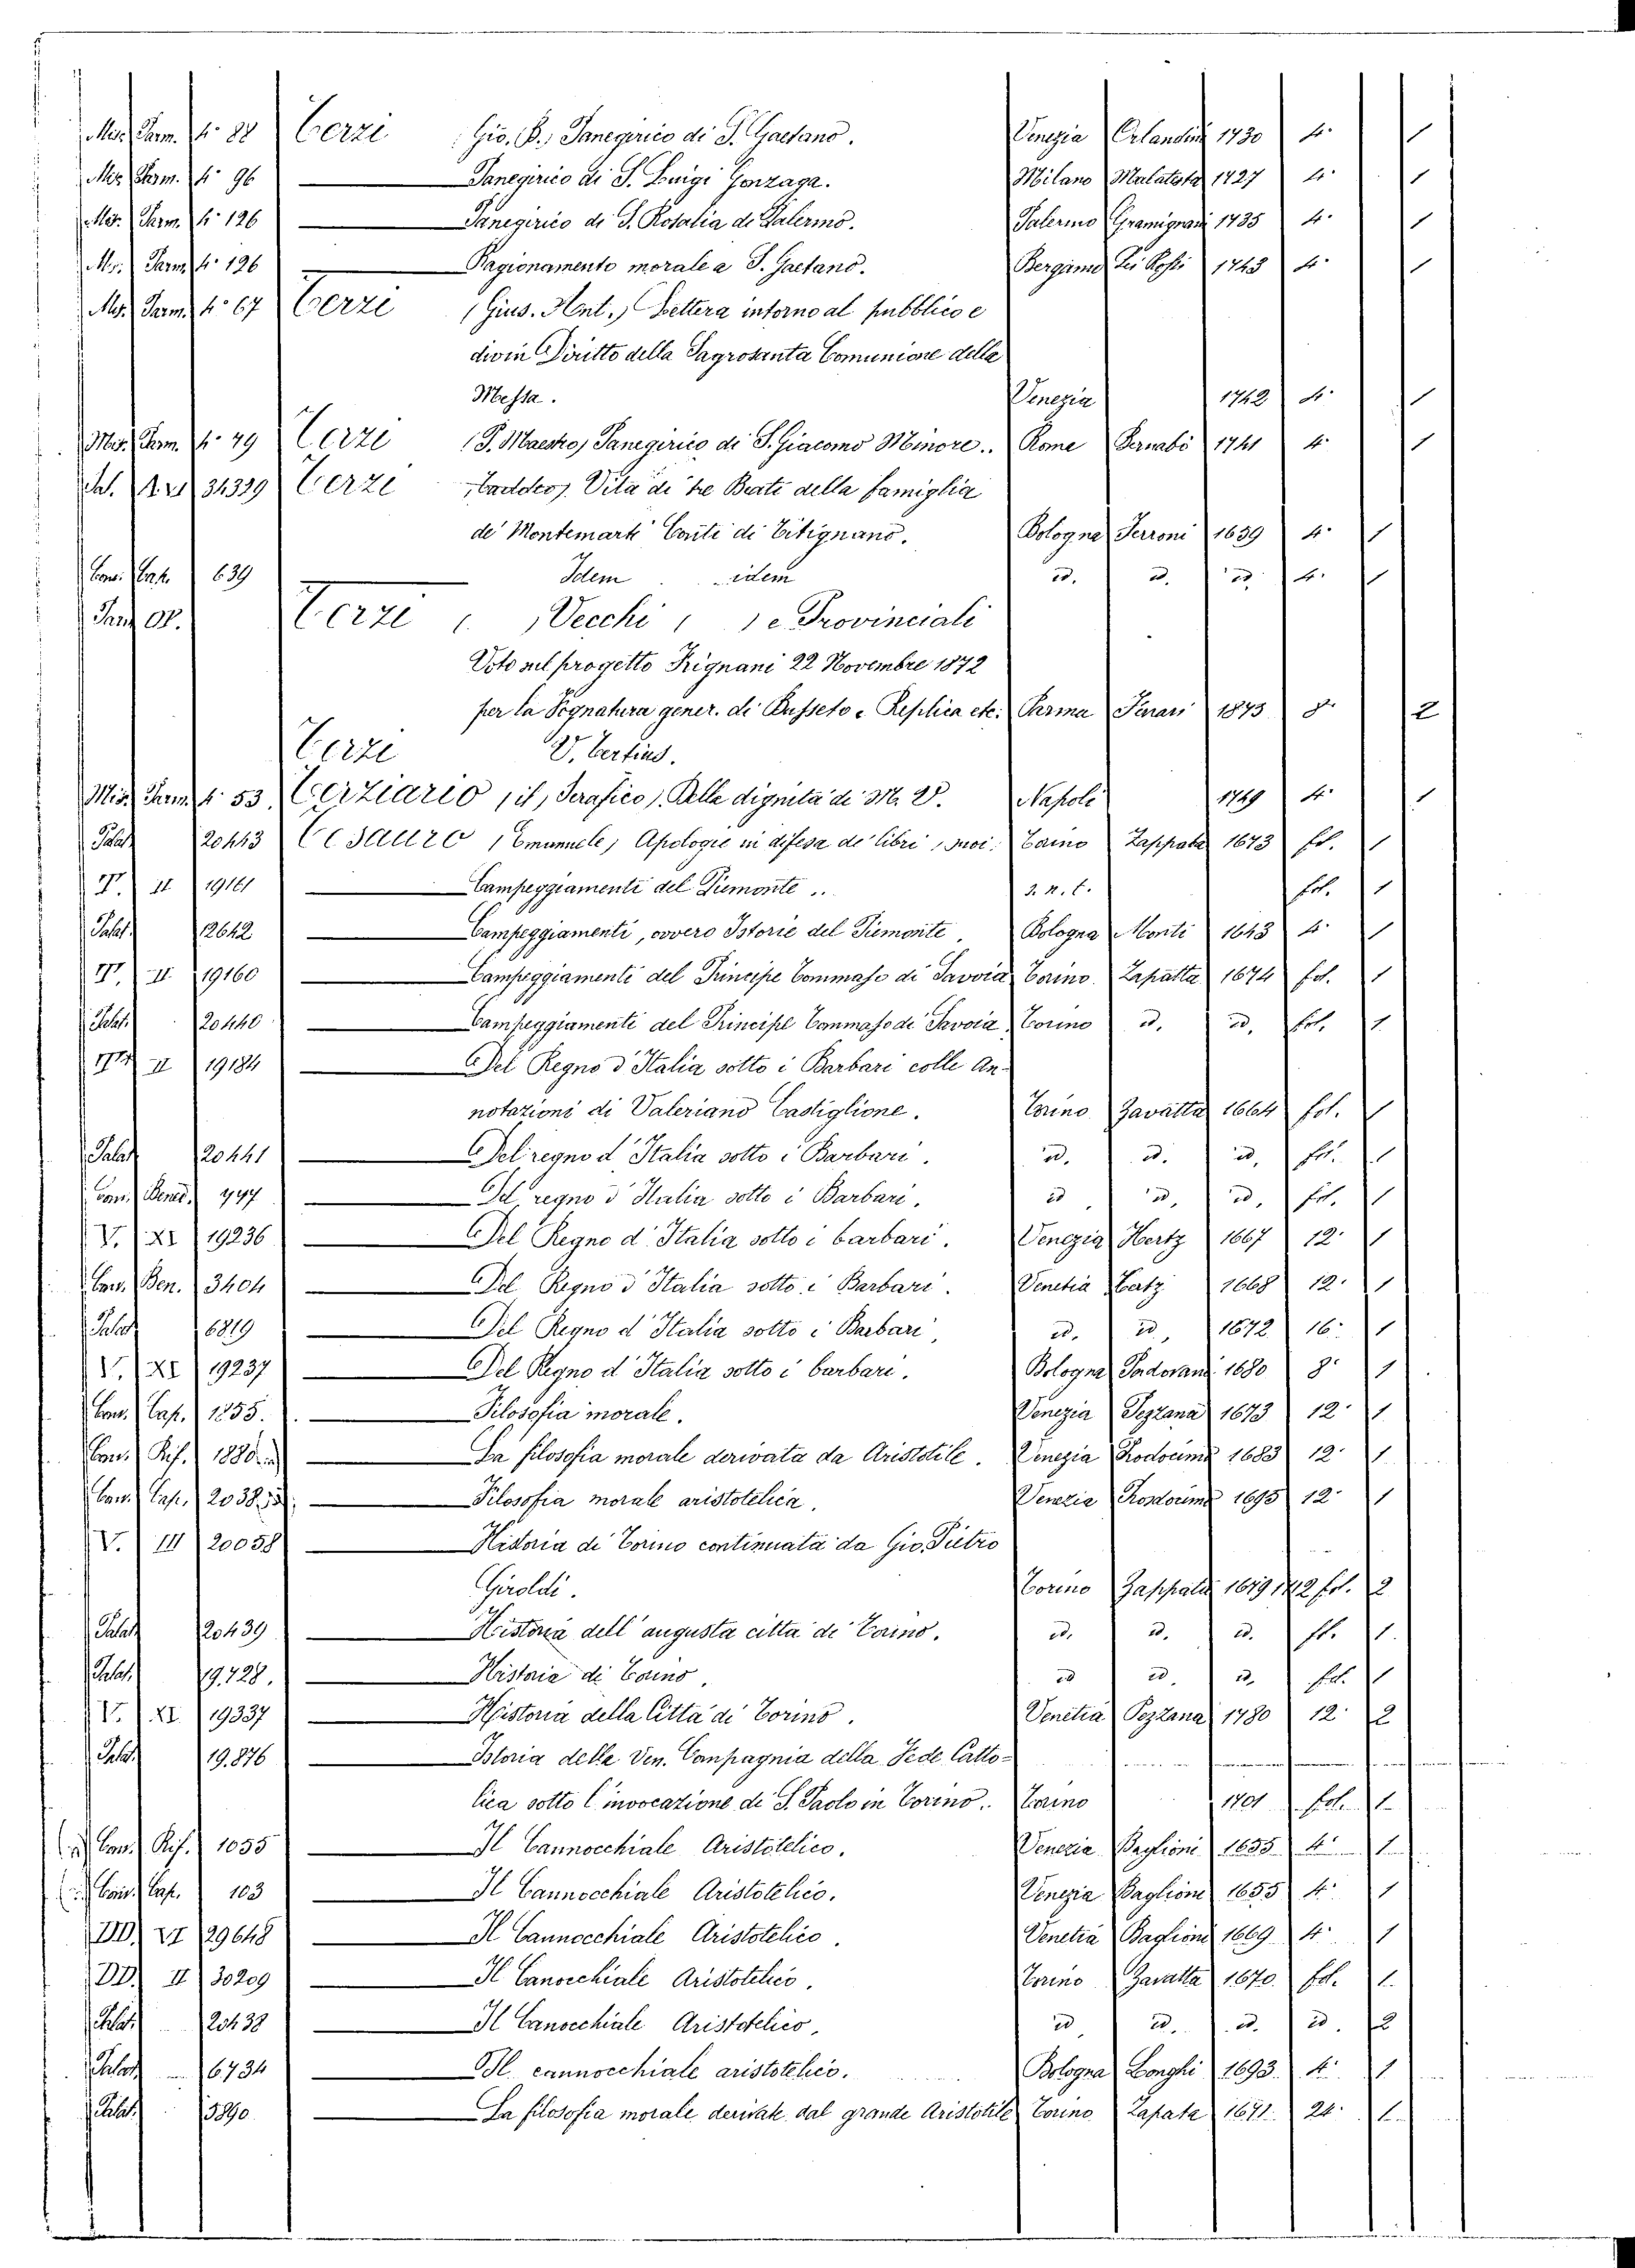 Mis. Parm. 4° 88 Terzi Gio. B., Panegirico di S. Gaetano. Venezia Orlandini 1730 4° 1
Mis. Parm. 4° 96 Panegirico di S. Luigi Gonzaga. Milano Malatesta 1727 4° 1
Mis. Parm. 4° 126 Panegirico di S. Rosalia di Palermo. Palermo Gramignani 1735 4° 1
Mis. Parm. 4° 126 Ragionamento morale a S. Gaetano. Bergamo Dei Rossi 1743 4° 1
Mis. Parm. 4° 67 Terzi (Gius. Ant.) Lettera intorno al pubblico e
divin Diritto della Sagrosanta Comunione della
Messa. Venezia 1742 4° 1
Mis. Parm. 4° 49 Terzi (P. Maestro) Panegirico di S. Giacomo Minore. Rome Bernabò 1741 4° 1
Sal. 34339 Terzi (Taddeo) Vita di tre Beati della famiglia
de' Montemarte Conti di Titignano. Bologna Ferroni 1639 4° 1
Conv. Cap. 639 Idem idem id. id. id. 4° 1
Terzi Vecchi e Provinciali
Voto sul progetto Frignani 22 Novembre 1872
per la Fognatura gener. di Busseto e Replica etc. Parma Ferrari 1873 8° 2
Terzi V. Tertius.
Mis. Parm. 4° 53. Terziario (il) Serafico). Delle dignità di M. V. Napoli 1749 4° 1
Palat. 20443 Tesauro (Emanuele) Apologie in difesa de' libri suoi. Torino Zappata 1673 fol. 1
V. II 19161 Campeggiamenti del Piemonte .. s. n. t. fol. 1
Palat. 12642 Campeggiamenti, ovvero Istorie del Piemonte. Bologna Monti 1643 4° 1
V. II 19160 Campeggiamenti del Principe Tommaso di Savoia Torino Zapatta 1674 fol. 1
Palat. 20440 Campeggiamenti del Principe Tommaso di Savoia Torino id. id. fol. 1
II 19184 Del Regno d'Italia sotto i Barbari colle An-
notazioni di Valeriano Castiglione. Torino Zavatta 1664 fol. 1
Palat. 20441 Del regno d'Italia sotto i Barbari. id. id. id. fol. 1
Conv. Bened. 747 Del regno d'Italia sotto i Barbari. id. id. id. fol. 1
V. XI 19236 Del Regno d'Italia sotto i barbari. Venezia Hertz 1667 12° 1
Conv. Ben. 3404 Del Regno d'Italia sotto i Barbari. Venetia Hertz 1668 12° 1
Palat. 6819 Del Regno d'Italia sotto i Barbari, id. id. 1672 16° 1
V. XI 19237 Del Regno d'Italia sotto i barbari. Bologna Padovani 1680 8° 1
Conv. Cap. 1255. Filosofia morale. Venezia Pezzana 1673 12° 1
Conv. Rif. 1880 La filosofia morale derivata da Aristotile. Venezia Prodocimo 1683 12° 1
Conv. Cap. 2038 Filosofia morale aristotelica. Venezia Prodocimo 1695 12° 1
V. III 20058 Historia di Torino continuata da Gio. Pietro
Giroldi. Torino Zappata 1679 1712 fol. 2
Palat. 20439 Historia dell'augusta città di Torino. id. id. id. fol. 1
Palat. 19.728. Historia di Torino, id. id. id. fol. 1
V. XI. 19337 Historia della Città di Torino. Venetia Pezzana 1780 12° 2
Palat. 19.876 Istoria della Ven. Compagnia della Fede Catto-
lica sotto l'invocazione di S. Paolo in Torino. Torino 1701 fol. 1
Conv. Rif. 1055 Il Cannocchiale Aristotelico. Venezia Baglioni 1655 4° 1
Conv. Cap. 103 Il Cannocchiale Aristotelico. Venezia Baglione 1655 4° 1
DD. VI 29648 Il Cannocchiale Aristotelico. Venetia Baglioni 1669 4° 1
DD. II 30209 Il Canocchiale Aristotelico. Torino Zavatta 1670. fol. 1
Palat. 20438 Il Canocchiale Aristotelico, id. id. id. id. 2
Palat. 6734 Il cannocchiale aristotelico. Bologna Longhi 1693 4° 1
Palat. 3890 La filosofia morale derivata dal grande Aristotile Torino Zapata 1671. 24° 1